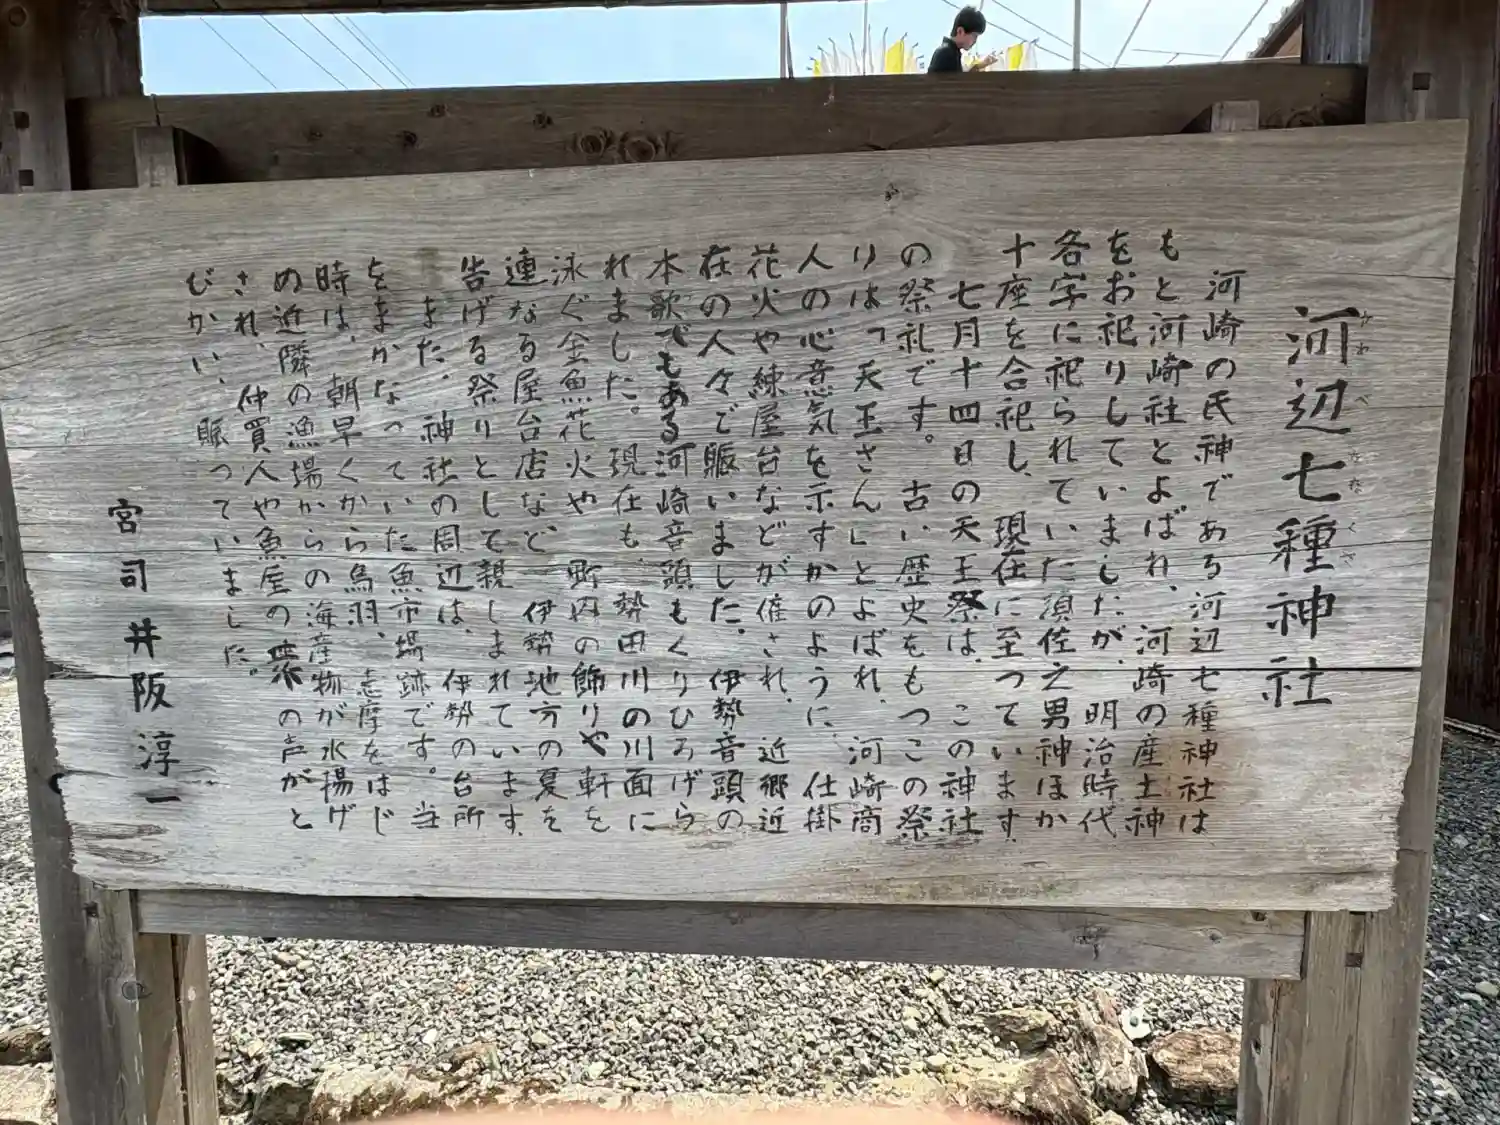 河辺七種神社
かわべななくさ
河崎の氏神である河辺七種神社は
もと河崎社とよばれ、河崎の産土神
をお祀りしていましたが、明治時代
各字に祀られていた須佐之男神ほか
十座を合祀し、現在に至っています
七月十四日の天王祭は、この神社
の祭礼です。古い歴史をもつこの祭
りは「天王さん」とよばれ、河崎商
人の心意気を示すかのように、仕掛
花火や練屋台などが催され、近郷近
在の人々で賑いました、伊勢音頭の
本歌でもある河崎音頭もくりひろげら
れました。現在も、勢田川の川面に
泳ぐ金魚花火や 町内の飾りや軒を
連なる屋台店など 伊勢地方の夏を
告げる祭りとして親しまれています
また、神社の周辺は、伊勢の台所
をまかなっていた魚市場跡です。当
時は、朝早くから鳥羽、志摩をはじ
め近隣の漁場からの海産物が水揚げ
され、仲買人や魚屋の衆の声がと
びかい、賑っていました。
宮司 井阪淳一